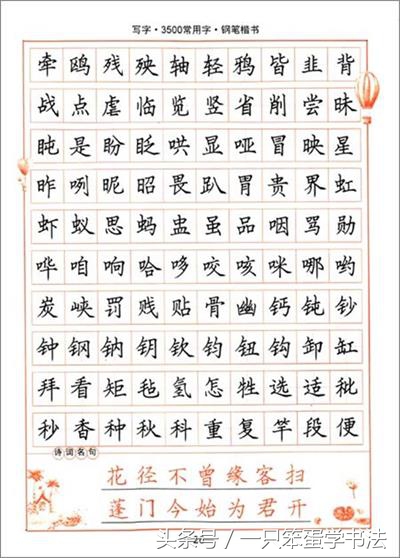 写字·3500常用字·钢笔楷书
牵鸥残殃轴轻鸦皆韭背
战点虐临览竖省削尝昧
盹是盼眨哄显哑冒映星
昨咧昵昭畏趴胃贵界虹
虾蚁思蚂盅虽品咽骂勋
哗咱响哈哆咬咳咪哪哟
炭峡罚贱贴骨幽钙钝钞
钟钢钠钥钦钧钮钩卸缸
拜看矩毡氢怎牲选适秕
秒香种秋科重复竿段便
诗词名句
花径不曾缘客扫
蓬门今始为君开
头条号/一只笨蛋学书法